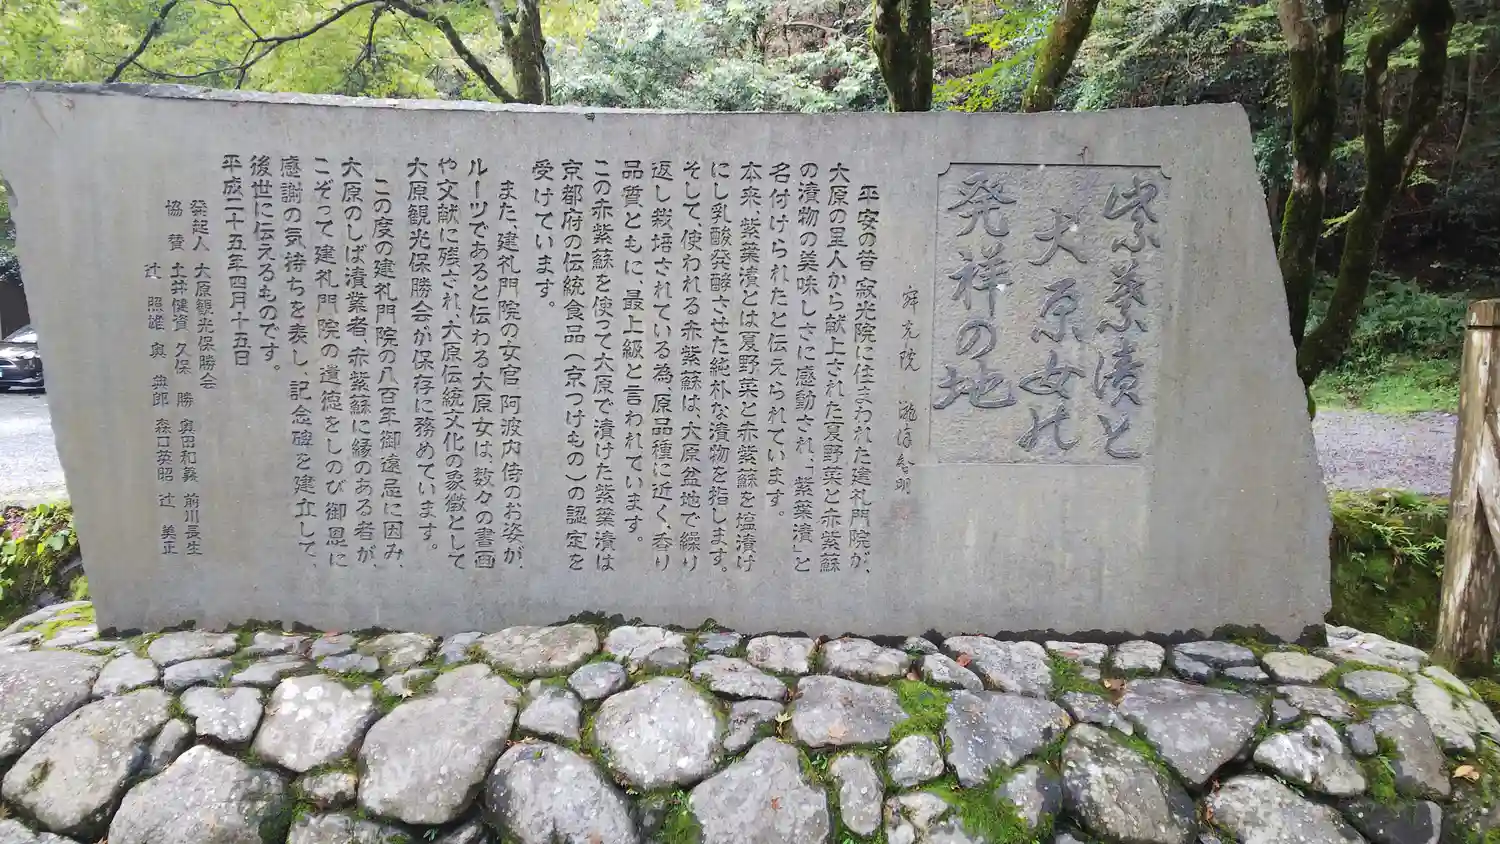 紫葉漬と
大原女の
発祥の地
寂光院 瀧澤智明
平安の昔寂光院に住まわれた建礼門院が、
大原の里人から献上された夏野菜と赤紫蘇
の漬物の美味しさに感動され、「紫葉漬」と
名付けられたと伝えられています。
本来、紫葉漬とは夏野菜と赤紫蘇を塩漬け
にし乳酸発酵させた純朴な漬物を指します。
そして使われる赤紫蘇は、大原盆地で繰り
返し栽培されている為、原品種に近く、香り
品質ともに、最上級と言われています。
この赤紫蘇を使って大原で漬けた紫葉漬は
京都府の伝統食品(京つけもの)の認定を
受けています。
また、建礼門院の女官、阿波内侍のお姿が、
ルーツであると伝わる大原女は、数々の書画
や文献に残され、大原伝統文化の象徴として
大原観光保勝会が保存に務めています。
この度の建礼門院の八百年御遠忌に因み、
大原のしば漬業者、赤紫蘇に縁のある者が、
こぞって建礼門院の遺徳をしのび御恩に
感謝の気持ちを表し、記念碑を建立して、
後世に伝えるものです。
平成二十五年四月十五日
発起人 大原観光保勝会
協賛 土井健資 久保勝 奥田和義 前川長生
辻照雄 奥典郎 森口英昭 辻美正